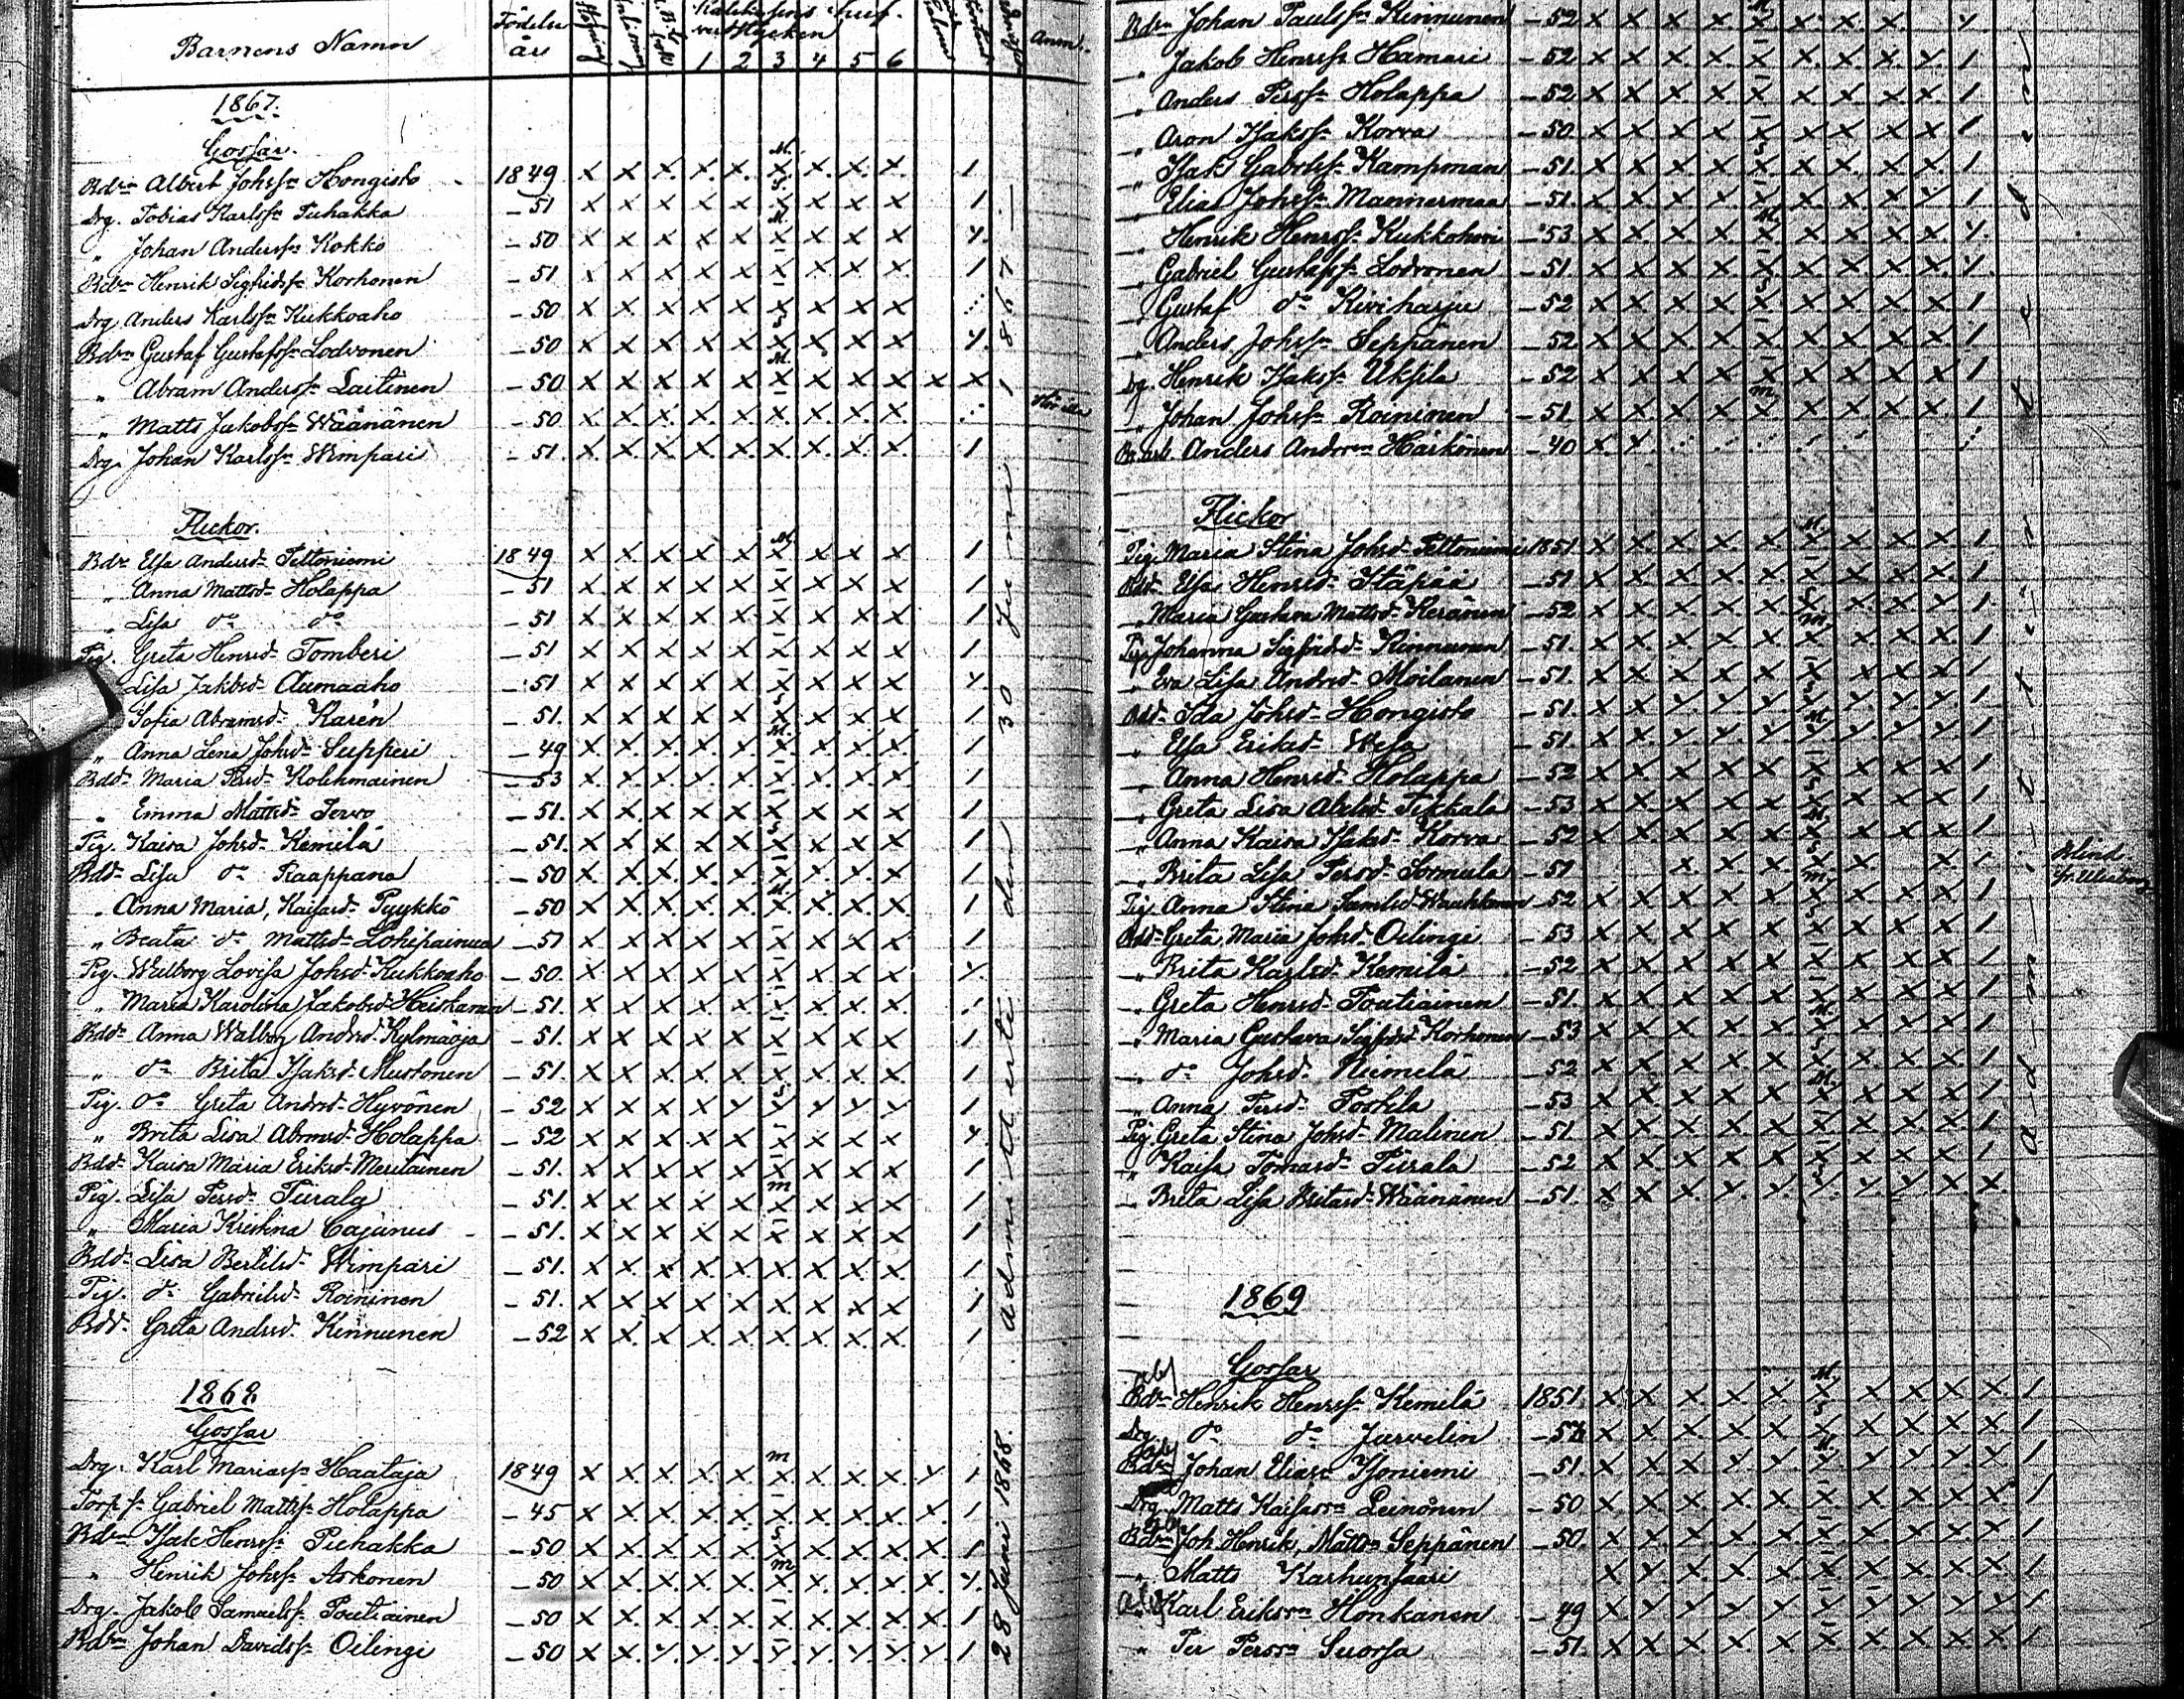 Barnens Namn Födelse år 1 2 3 4 5 6 Anm.
1867.
Gossar.
Bds:n Albert Johss:n Hongisto 1849
Drg. Tobias Karlss:n Puhakka – 51
„ Johan Anderss:n Kokko – 50
Bds:n Henrik Sigfridss:n Korhonen – 51
Drg Anders Karlss:n Kukkoaho – 50
Bds:n Gustaf Gustafss:n Lodvonen – 50
„ Abram Anderss:n Laitinen – 50
„ Matts Jakobss:n Wäänänen – 50
Drg. Johan Karlss:n Wimpari – 51
Flickor.
Bdr Elsa Andersd:r Tettoniemi 1849
„ Anna Mattsd:r Holappa – 51
„ Lisa d:o d:o – 51
Pig. Greta Henrsd:r Tomberi – 51
Lisa Jakbsd:r Aumaaho – 51
Sofia Abramsd:r Karén – 51.
„ Anna Lena Johsd:r Supperi – 49
Bdd:r Maria Persd:r Kolehmainen – 53
„ Emma Mattsd:r Tervo – 51.
Pig. Kaisa Johsd:r Kemilä – 51.
Bdd:r Lisa d:o Raappana – 50
„ Anna Maria, Kaisasd:r Pyykkö – 50
„ Beata d:o Mattsd:r Lohipainua – 51
Pig. Walborg Lovisa Johsd:r Kukkoaho – 50.
„ Maria Karolina Jakobsd:r Heiskanen – 51.
Bdd:r Anna Walborg Andrsd:r Kylmäoja – 51.
„ d:o Brita Isaksd:r Mustonen – 51.
Pig. d:o Greta Andrsd:r Hyvönen – 52
„ Brita Lisa Abrmsd:r Holappa – 52
Bdd:r Kaisa Maria Eriksd:r Meriläinen – 51.
Pig. Lisa Persd:r Tiirala – 51.
„ Maria Kristina Cajanus – 51.
Bdd:r Lisa Bertilsd:r Wimpari – 51.
Pig. d:o Gabrielsd:r Roininen – 51.
Bdd:r Greta Andrsd:r Kinnunen – 52
admitterti den 30 Juni 1867 —
1868
Gossar
Drg. Karl Mariass:n Haataja 1849
Torp. s. Gabriel Mattss:n Holappa – 45
Bds:n Isak Henrss:n Puhakka – 50
„ Henrik Johss:n Askonen – 50
Drg. Jakob Samuelss:n Poutiainen – 50
Bds:n Johan Davidss:n Oilingi – 50
28 Juni 1868.
Bds:n Johan Paulss:n Kinnunen – 52
„ Jakob Henrss:n Hamari – 52
„ Anders Perss:n Holappa – 52
„ Aron Isakss:n Korva – 50
„ Isak Gabrlss:n Kampman – 51.
„ Elias Johss:n Mannermaa – 51.
„ Henrik Henrss:n Kukkohovi – 53
„ Gabriel Gustafss:n Lodvonen – 51.
„ Gustaf d:o Kiviharju – 52
„ Anders Johss:n Seppänen – 52
Dg. Henrik Isakss:n Uksila – 52
„ Johan Johss:n Roininen – 51.
Anders Andrss:n Härkönen – 40
Flickor
Pig. Maria Stina Johsd:r Tettoniemi 1851.
Bdd:r Elsa Henrsd:r Itäpää – 51
„ Maria Gustava Mattsd:r Keränen – 52
Pig Johanna Sigfridsd:r Kinnunen – 51.
„ Eva Lisa Andrsd:r Moilanen – 51.
Bdd:r Ida Johsd:r Hongisto – 51.
„ Elsa Eriksd:r Wesa – 51.
„ Anna Henrsd:r Holappa – 52
„ Greta Lisa Tikkala – 53
„ Anna Kaisa Isaksd:r Korva – 52
„ Brita Lisa Persd:r Sormula – 51 Blind
Pig. Anna Stina Samlsd:r – 52
Bdd:r Greta Maria Johsd:r Oilingi – 53
„ Brita Karlsd:r Kemilä – 52
„ Greta Henrsd:r Poutiainen – 51.
„ Maria Gustava Sigfrdsd:r Korhonen – 53
„ d:o Johsd:r Niemelä – 52
„ Anna Persd:r – 53
Pig Greta Stina Johsd:r Malinen – 51.
„ Kaisa Tomasd:r Tiirala – 52
„ Brita Lisa Britasd:r Wäänänen – 51.
1869
Gossar
Bds:n Henrik Henrss:n Kemilä 1851.
Drg. d:o d:o Jurvelin
Bds:n Johan Eliass:n Isoniemi – 51.
Drg. Matts Kaisass:n Leinonen – 50
Bds:n Joh. Henrik, Mattss:n Seppänen – 50.
„ Matts Karhunsaari
Karl Erikss:n Honkanen – 49
„ Per Perss:n Suorsa – 51.